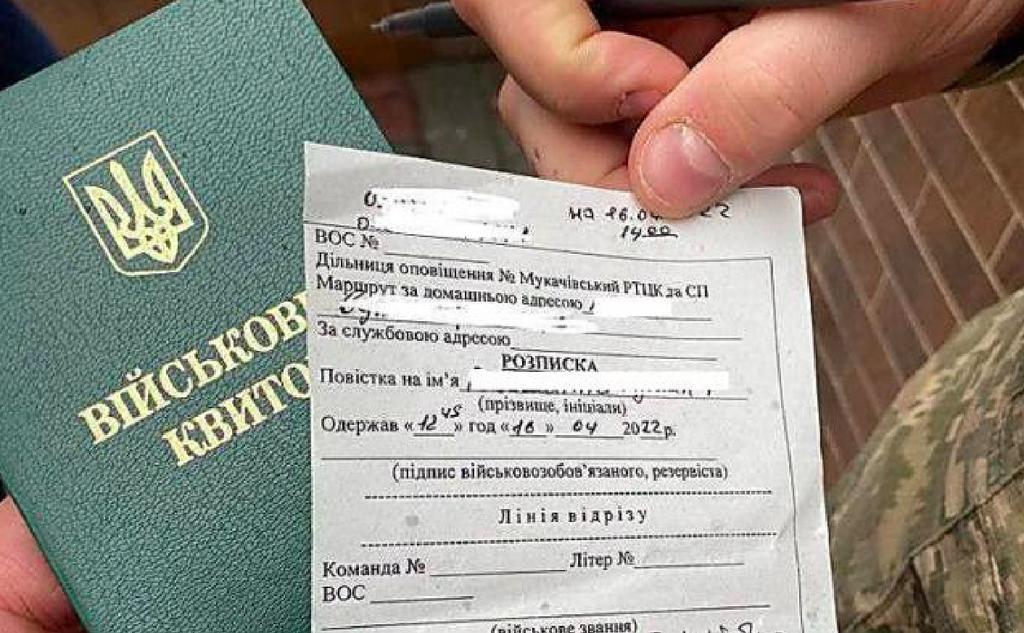 ВІЙСЬКОВ
КВИТО
на 16.04 22
14 00
ВОС №
Дільниця оповіщення № Мукачівський РТЦК да СП
Маршрут за домашньою адресою
За службовою адресою
РОЗПИСКА
Повістка на ім’я
(прізвище, ініціали)
Одержав «12 45» год «16» 04 2022 р.
(підпис військовозобов’язаного, резервіста)
Лінія відрізу
Команда № Літер №
ВОС
(військове звання)